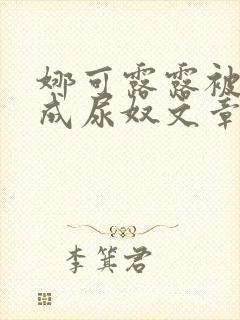 娜可露露被
成尿奴文章
李箕君